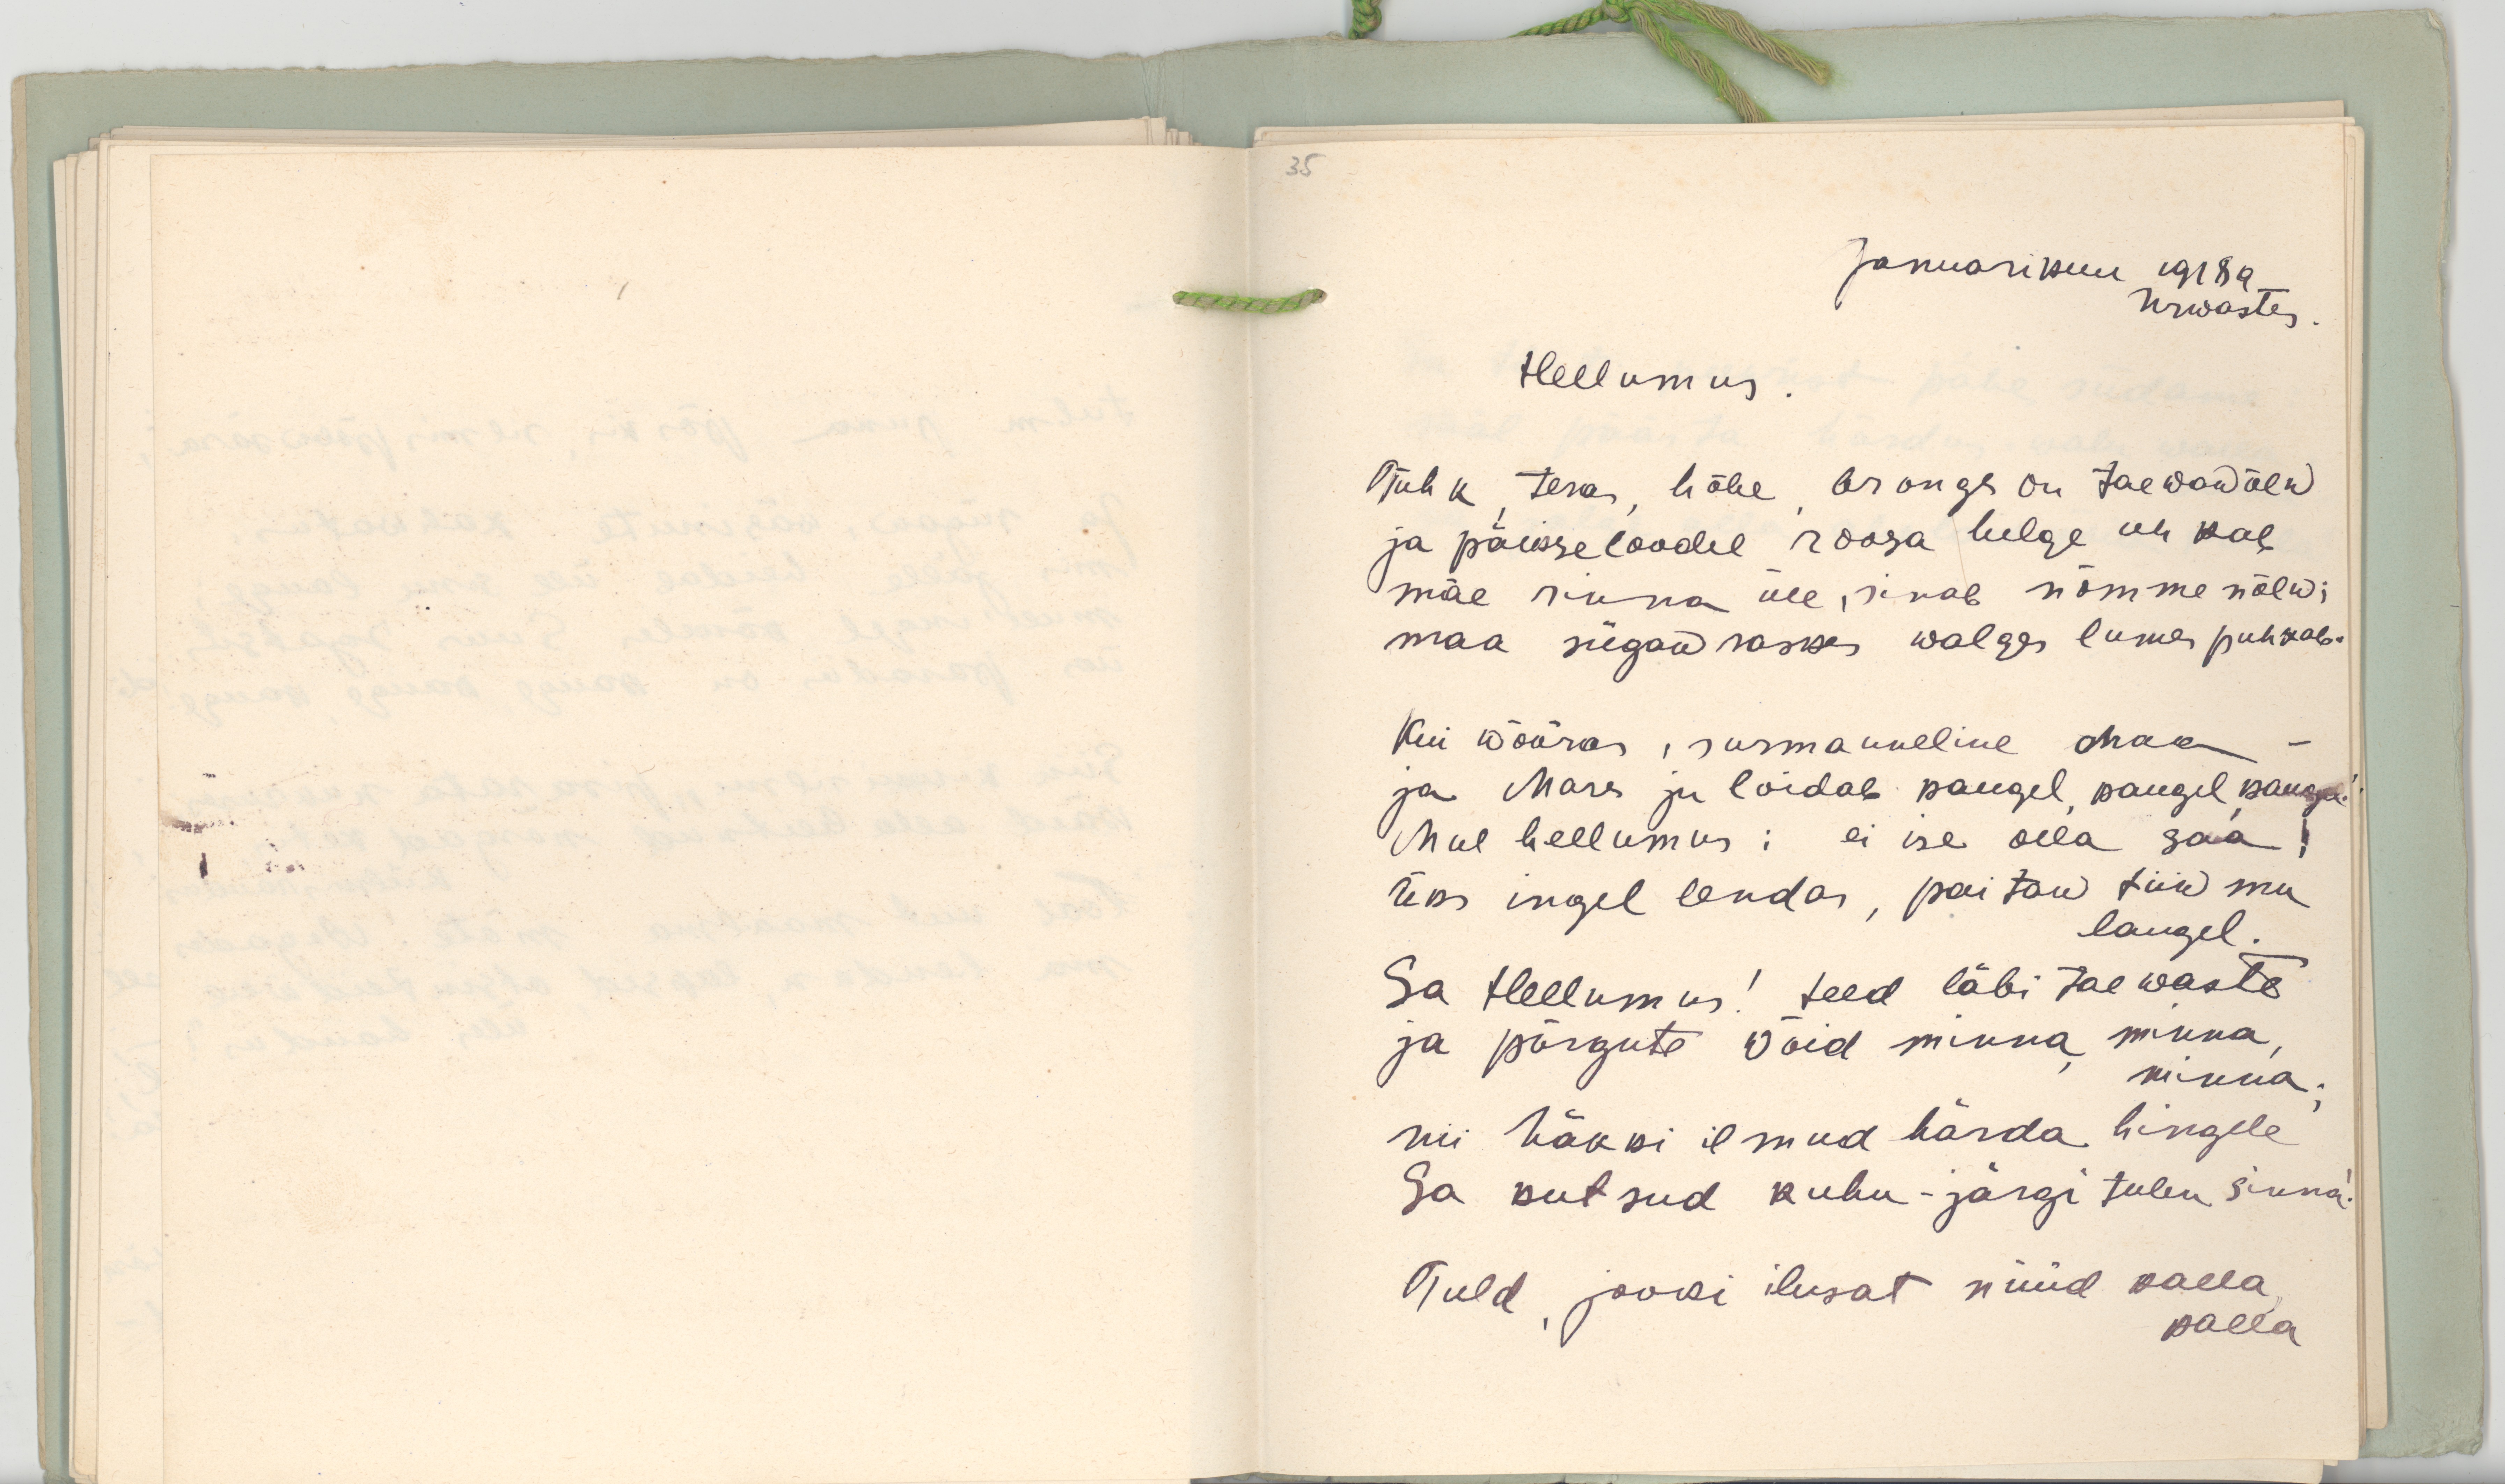 35
Januarikuu 1918a
Urwastes.
Hellumus.
Tuhk, teras, hõbe, brongs on taewawõlw
ja päiksseloodel roosa helge uhkab
mäe rinna üle, sinab nõmme nõlw;
maa sügaw raskes walges lumes puhkab.
Kui wõõras, surmanneline maa –
ja Mars ju loidab kaugel, kaugel, kaugel!
Mul hellumus: ei ise olla saa!
Üks ingel lendas, paitaw tiiw mu
laugel.
Sa Hellumus! teed läbi taewaste
ja põrgute wõid minna, minna,
minna;
nii häkki ilmud härda hingele
Sa kutsud kuhu - järgi tulen sinna!
Tuld, jooki ilusat nüüd kalla,
kalla